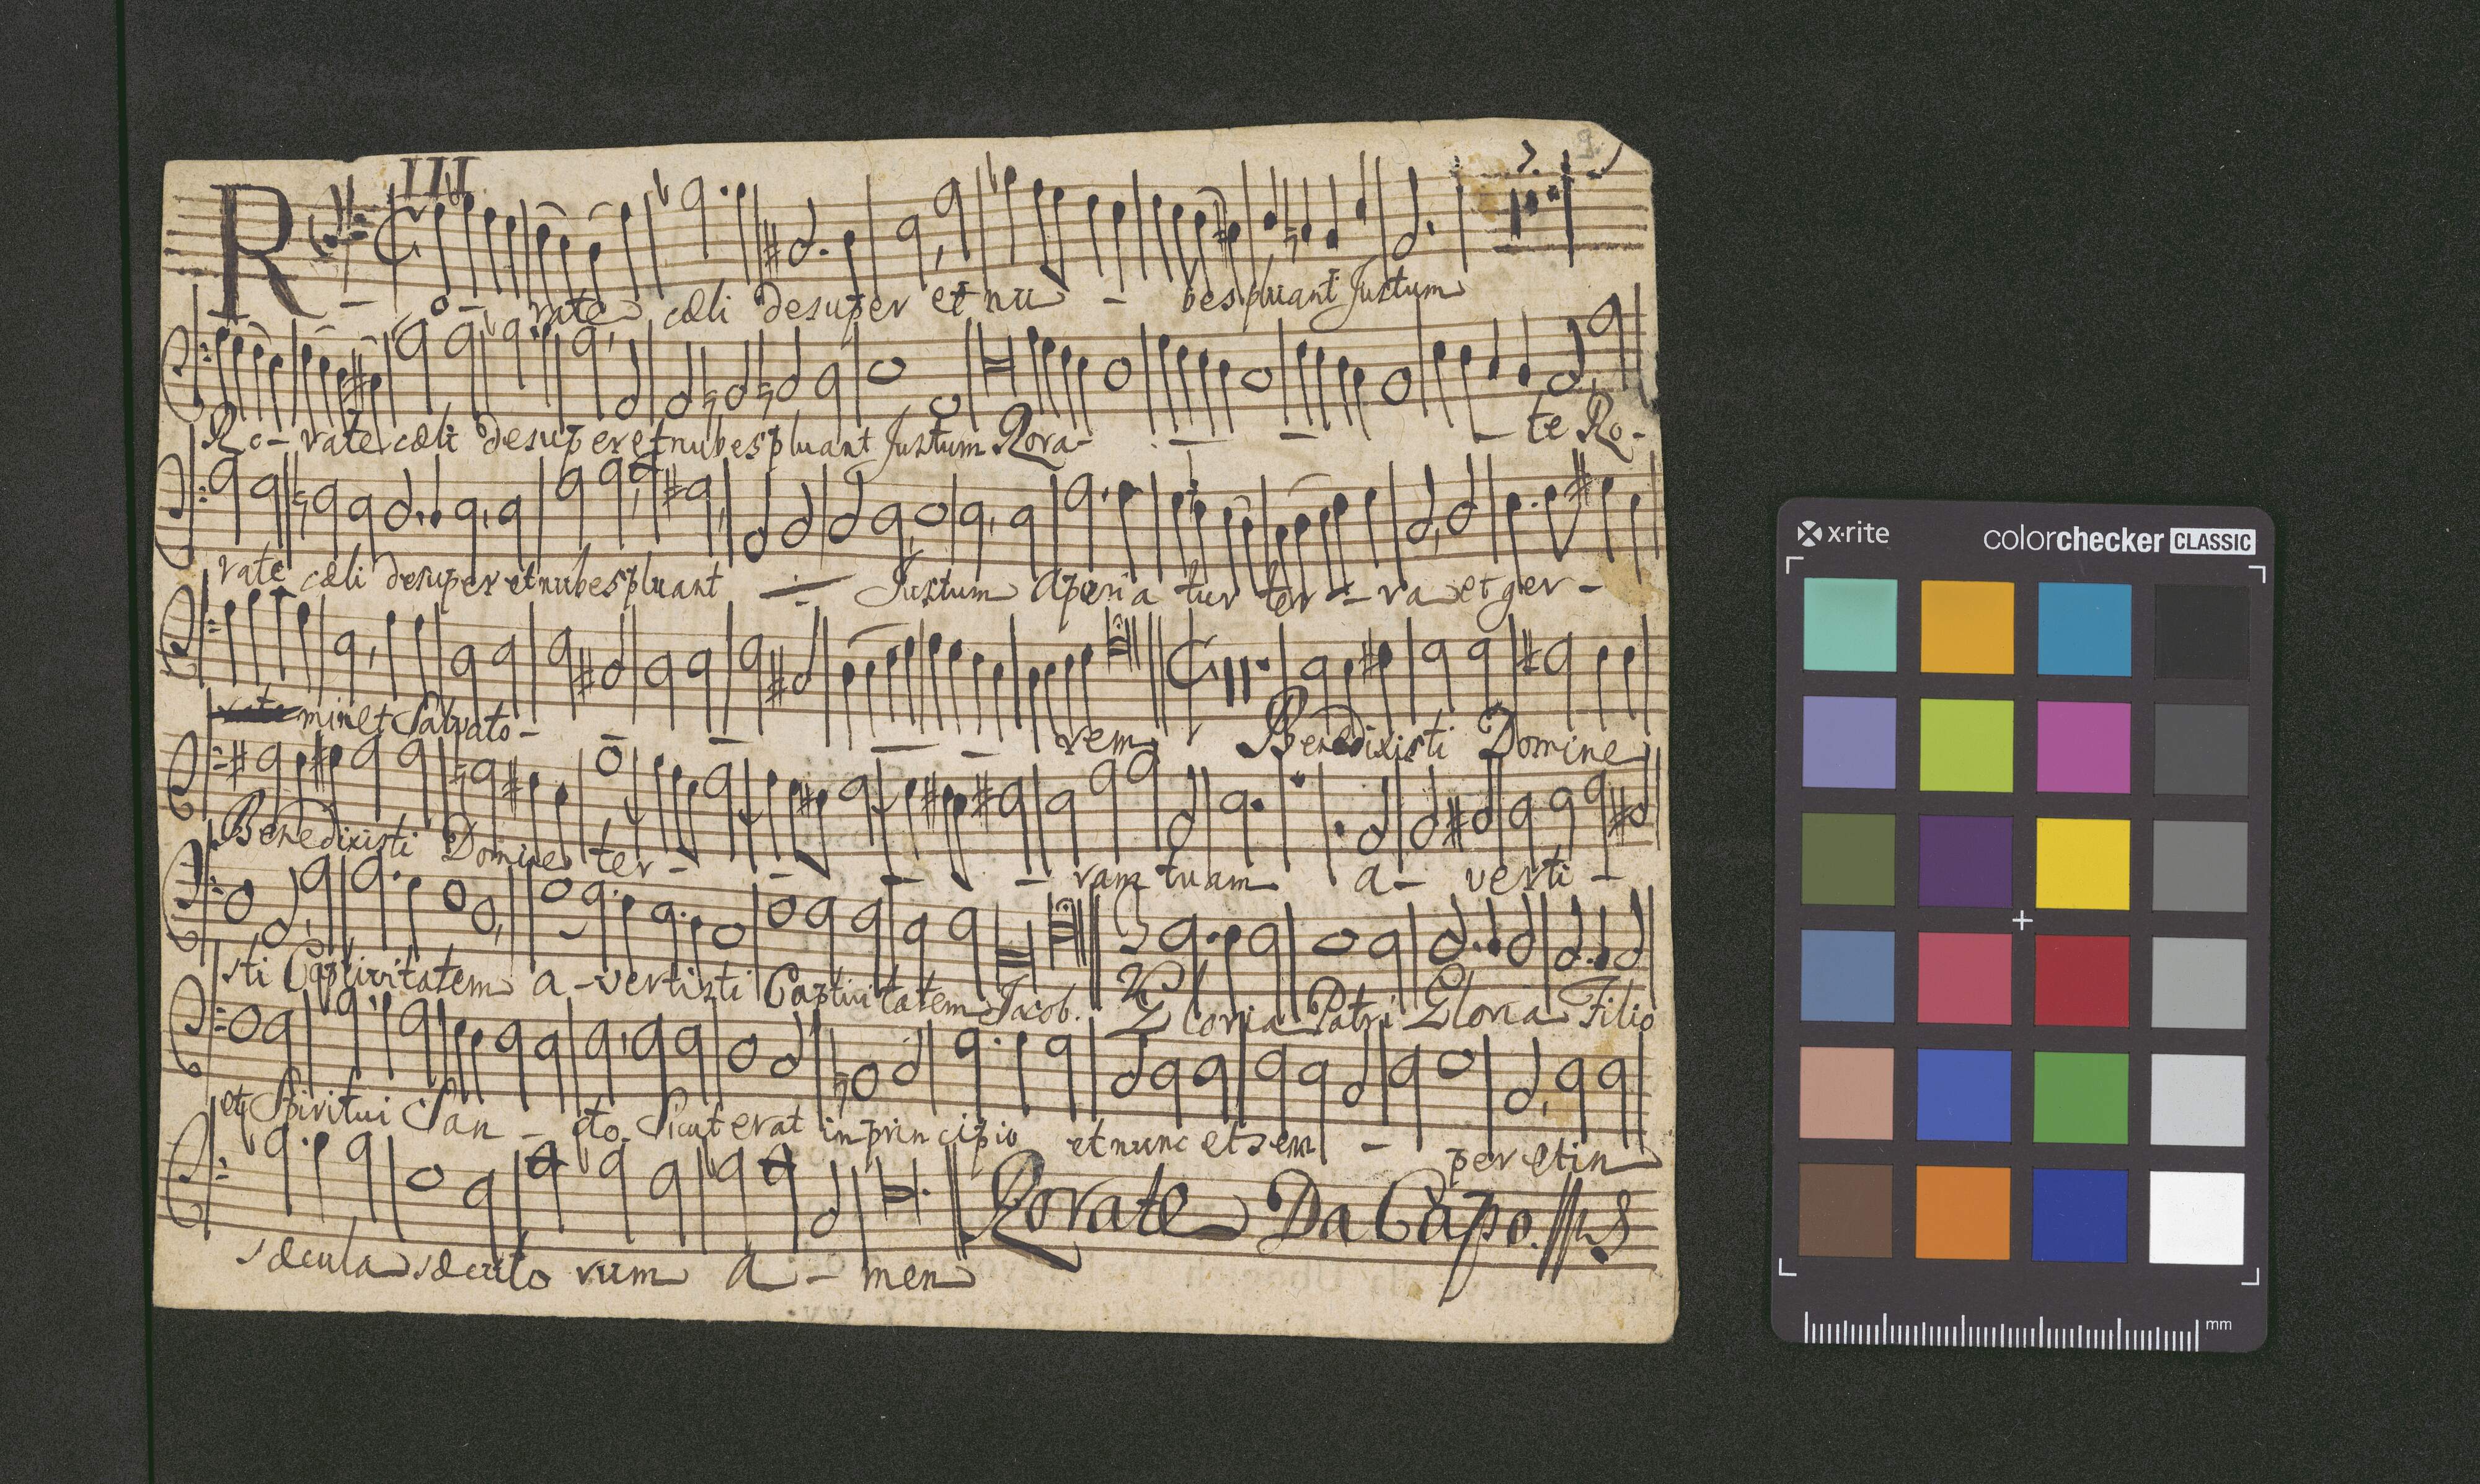 III
Ro - rate cæli desuper et nu - bes pluant Justum
Ro - rate cæli desuper et nubes pluant Justum Rora - - - - te Ro -
rate cæli desuper et nubes pluant Justum Aperia tur ter - ra et ger -
minet Salvato - - - - - rem Benedixisti Domine
Benedixisti Domine ter - - - - ram tuam a - verti -
sti Captivitatem a - vertisti Captivitatem Jacob. Gloria Patri Gloria Filio
et Spiritui San - cto. Sicut erat in principio et nunc et sem - per et in
sæcula sæculo rum a - men Rorate Da Capo
x·rite colorchecker CLASSIC
mm